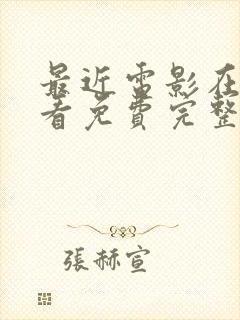 最近电影在
看免费完整
張赫宣